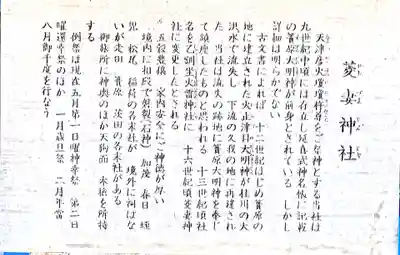 菱妻神社
天津彦火瓊瓊杵尊をご祭神とする当社は
九世紀中頃には存在し延喜式神名帳に記載
の簀原大明神が前身とされている しかし
詳細は明らかでない
古文書によれば 十二世紀はじめ簀原の
地に建立された火止津目大明神が桂川の大
洪水で流失し 下流の久我の地に再建され
た 当社は流失の跡地に簀原大明神を奉じ
て鎮座したものと思われる 十三世紀頃社
名を乙訓坐火雷神社に 十六世紀頃菱妻神
社に変更したとされる
五穀豊穣 家内安全にご神徳が厚い
境内に相殿で 社(石神) 加茂 春日 蛭
児 松尾 稲荷の各末社が 境外に祠はな
いが走田 簀原 茨田の各末社がある
御旅所に神輿のほか天狗面 末社を所持
する
例祭は現在五月第一日曜神幸祭 第二日
曜還幸祭のほか 一月歳旦祭 二月年当
八月御千度を行なう